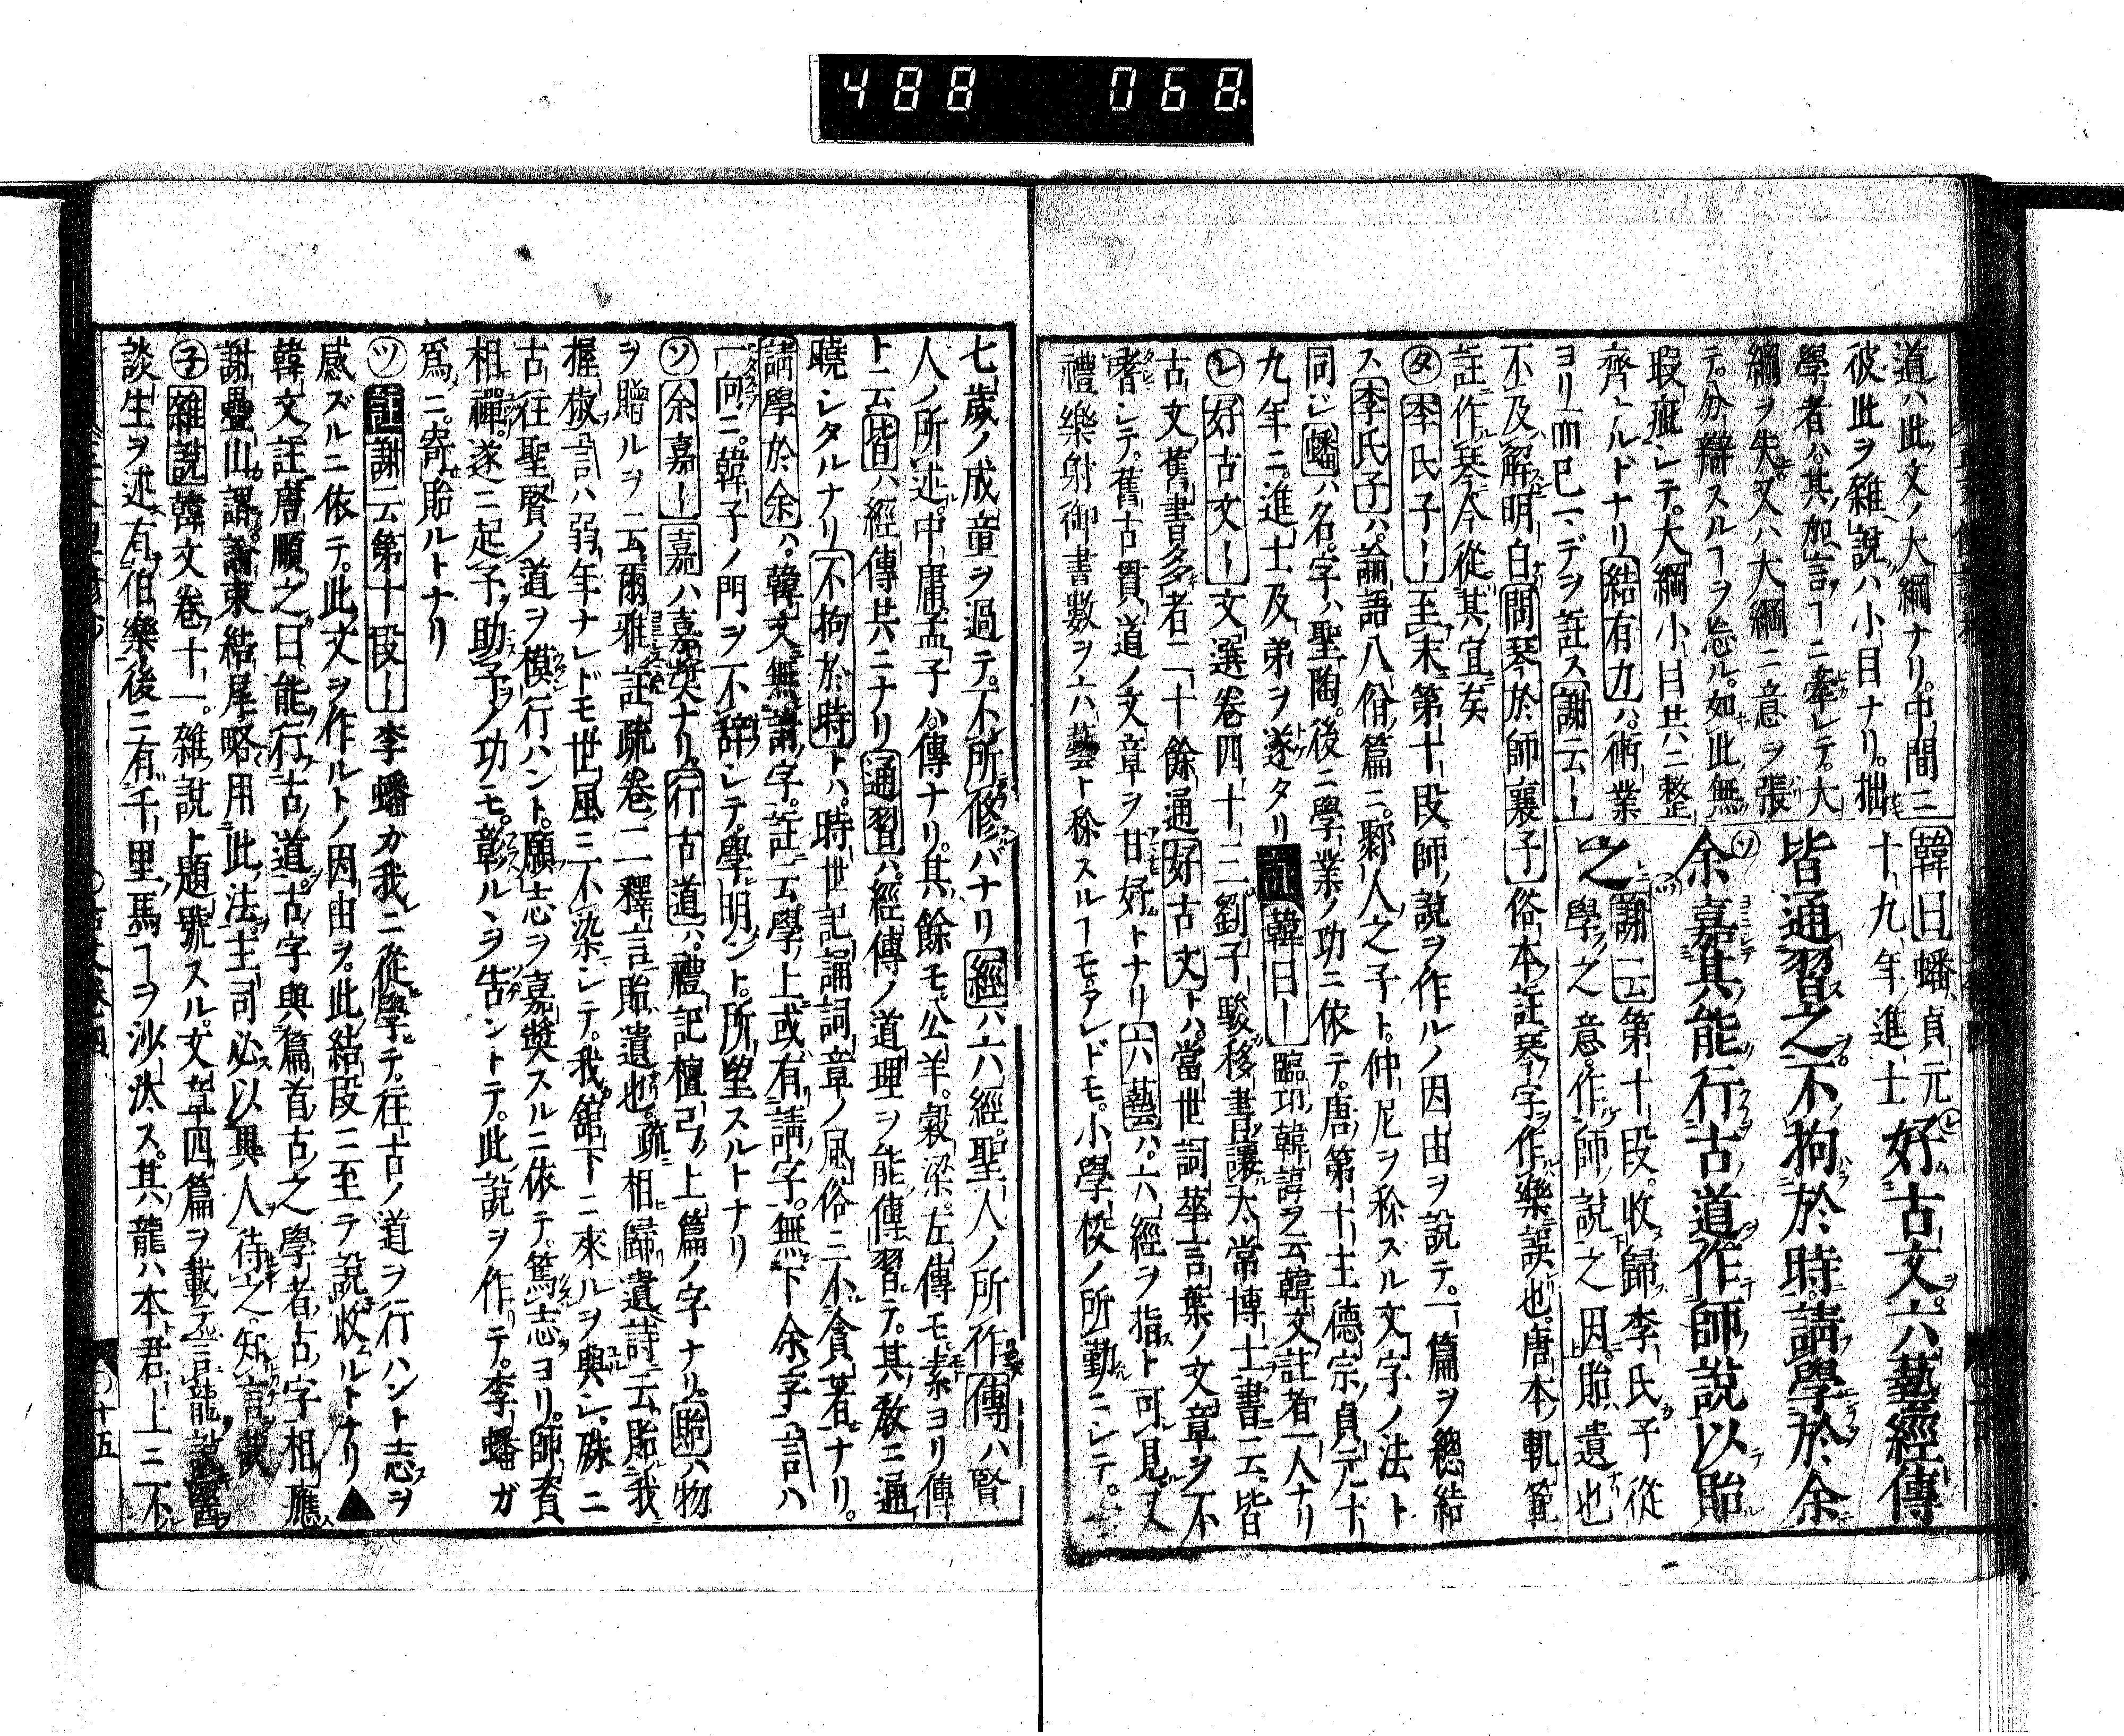 488 068
道ハ此文ノ大綱ナリ。中間ニ
彼此ヲ雜ヘ說ハ小目ナリ。拙
學者ハ。其加言ヿニ牽レテ。大
綱ヲ失。又ハ大綱ニ意ヲ張
テ。分辯スルヿヲ忘ル。如此無
瑕疵シテ。大綱小目共ニ整
齊ルトナリ結有力ハ。術業
ヨリ而已一デヲ註ス謝云ー
韓曰蟠貞元
十九年進士
好古文。六藝經傳
皆通習之。不拘於時。請學於余。
余嘉其能行古道。作師說以貽
之
謝云第十段。收歸李氏子從
學之意。作師說之因。貽遺也
不及解明白問琴於師襄子俗本註琴字作樂誤也。唐本軌範
註作琴今從其宜矣
タ李氏子ー至末第十段。師說ヲ作ルノ因由ヲ說テ。一篇ヲ總結
ス李氏子ハ。論語八佾篇ニ。鄹人之子ト。仲尼ヲ称スル文字ノ法ト
同ジ蟠ハ名。字ハ聖陶。後ニ學業ノ功ニ依テ。唐第十主德宗ノ貞元十
九年ニ。進士及弟ヲ遂タリ註韓曰ー臨卭韓諱之云韓文註者一人ナリ
レ好古文ー文選卷四十三劉子駿移書讓太常博士書ニ云。皆
古文舊書多者二十餘通好古文トハ。當世詞華言葉ノ文章ヲ不
嗜シテ。舊古貫道ノ文章ヲ甘好トナリ六藝ハ。六經ヲ指ト可見。又
禮樂射御書數ヲ六藝ト称スルヿモ。アレドモ。小學校ノ所勤ニシテ。十
七歲ノ成童ヲ過テ。不所修バナリ經ハ六經。聖人ノ所作傳ハ賢
人ノ所述。中庸孟子ハ傳ナリ。其餘モ。公羊。穀梁。左傳モ。素ヨリ傳
ト云皆ハ經傳共ニナリ通習ハ。經傳ノ道理ヲ能傳習テ。其教ニ通
曉シタルナリ不拘於時トハ。時世記誦詞章ノ風俗ニ不貪著ナリ。
請學於余ハ。韓文無請字。註云學上或有請字。無下余字言ハ
一向ニ。韓子ノ門ヲ不辞シテ。學明ント。所望スルトナリ
ソ余嘉ー嘉ハ嘉奬ナリ。行古道ハ。禮記檀弓上篇ノ字ナリ。貽ハ物
ヲ贈ルヲ云。爾雅註疏卷二釋言貽遺也。疏相歸遺詩云貽我
握椒言ハ弱年ナレドモ世風ニ不染シテ。我舘下ニ來ルヲ與シ。殊ニ
古往聖賢ノ道ヲ模行ハント。願志ヲ嘉奬スルニ依テ。篤志ヨリ。師資
相禪。遂ニ起予ヲ助予ノ功モ。彰ルヽヲ告ントテ。此說ヲ作テ。李蟠ガ
爲ニ。寄貽ルトナリ
ツ註謝云第十段ー李蟠カ我ニ從學テ。往古ノ道ヲ行ハント志ヲ
感ズルニ依テ。此文ヲ作ルトノ因由ヲ。此結段ニ至テ說收ルトナリ▲
韓文註唐順之曰。能行古道。古字與篇首古之學者。古字相應
謝疊山謂。諭東結尾略用此法。主司必以異人待之。知言哉
子雜說韓文卷十一。雜說ト題號スル。文章四篇ヲ載テ言龍說醫
談生ヲ述有伯樂後ニ有千里馬ヿヲ沙汰ス。其龍ハ本君上ニ不
十五